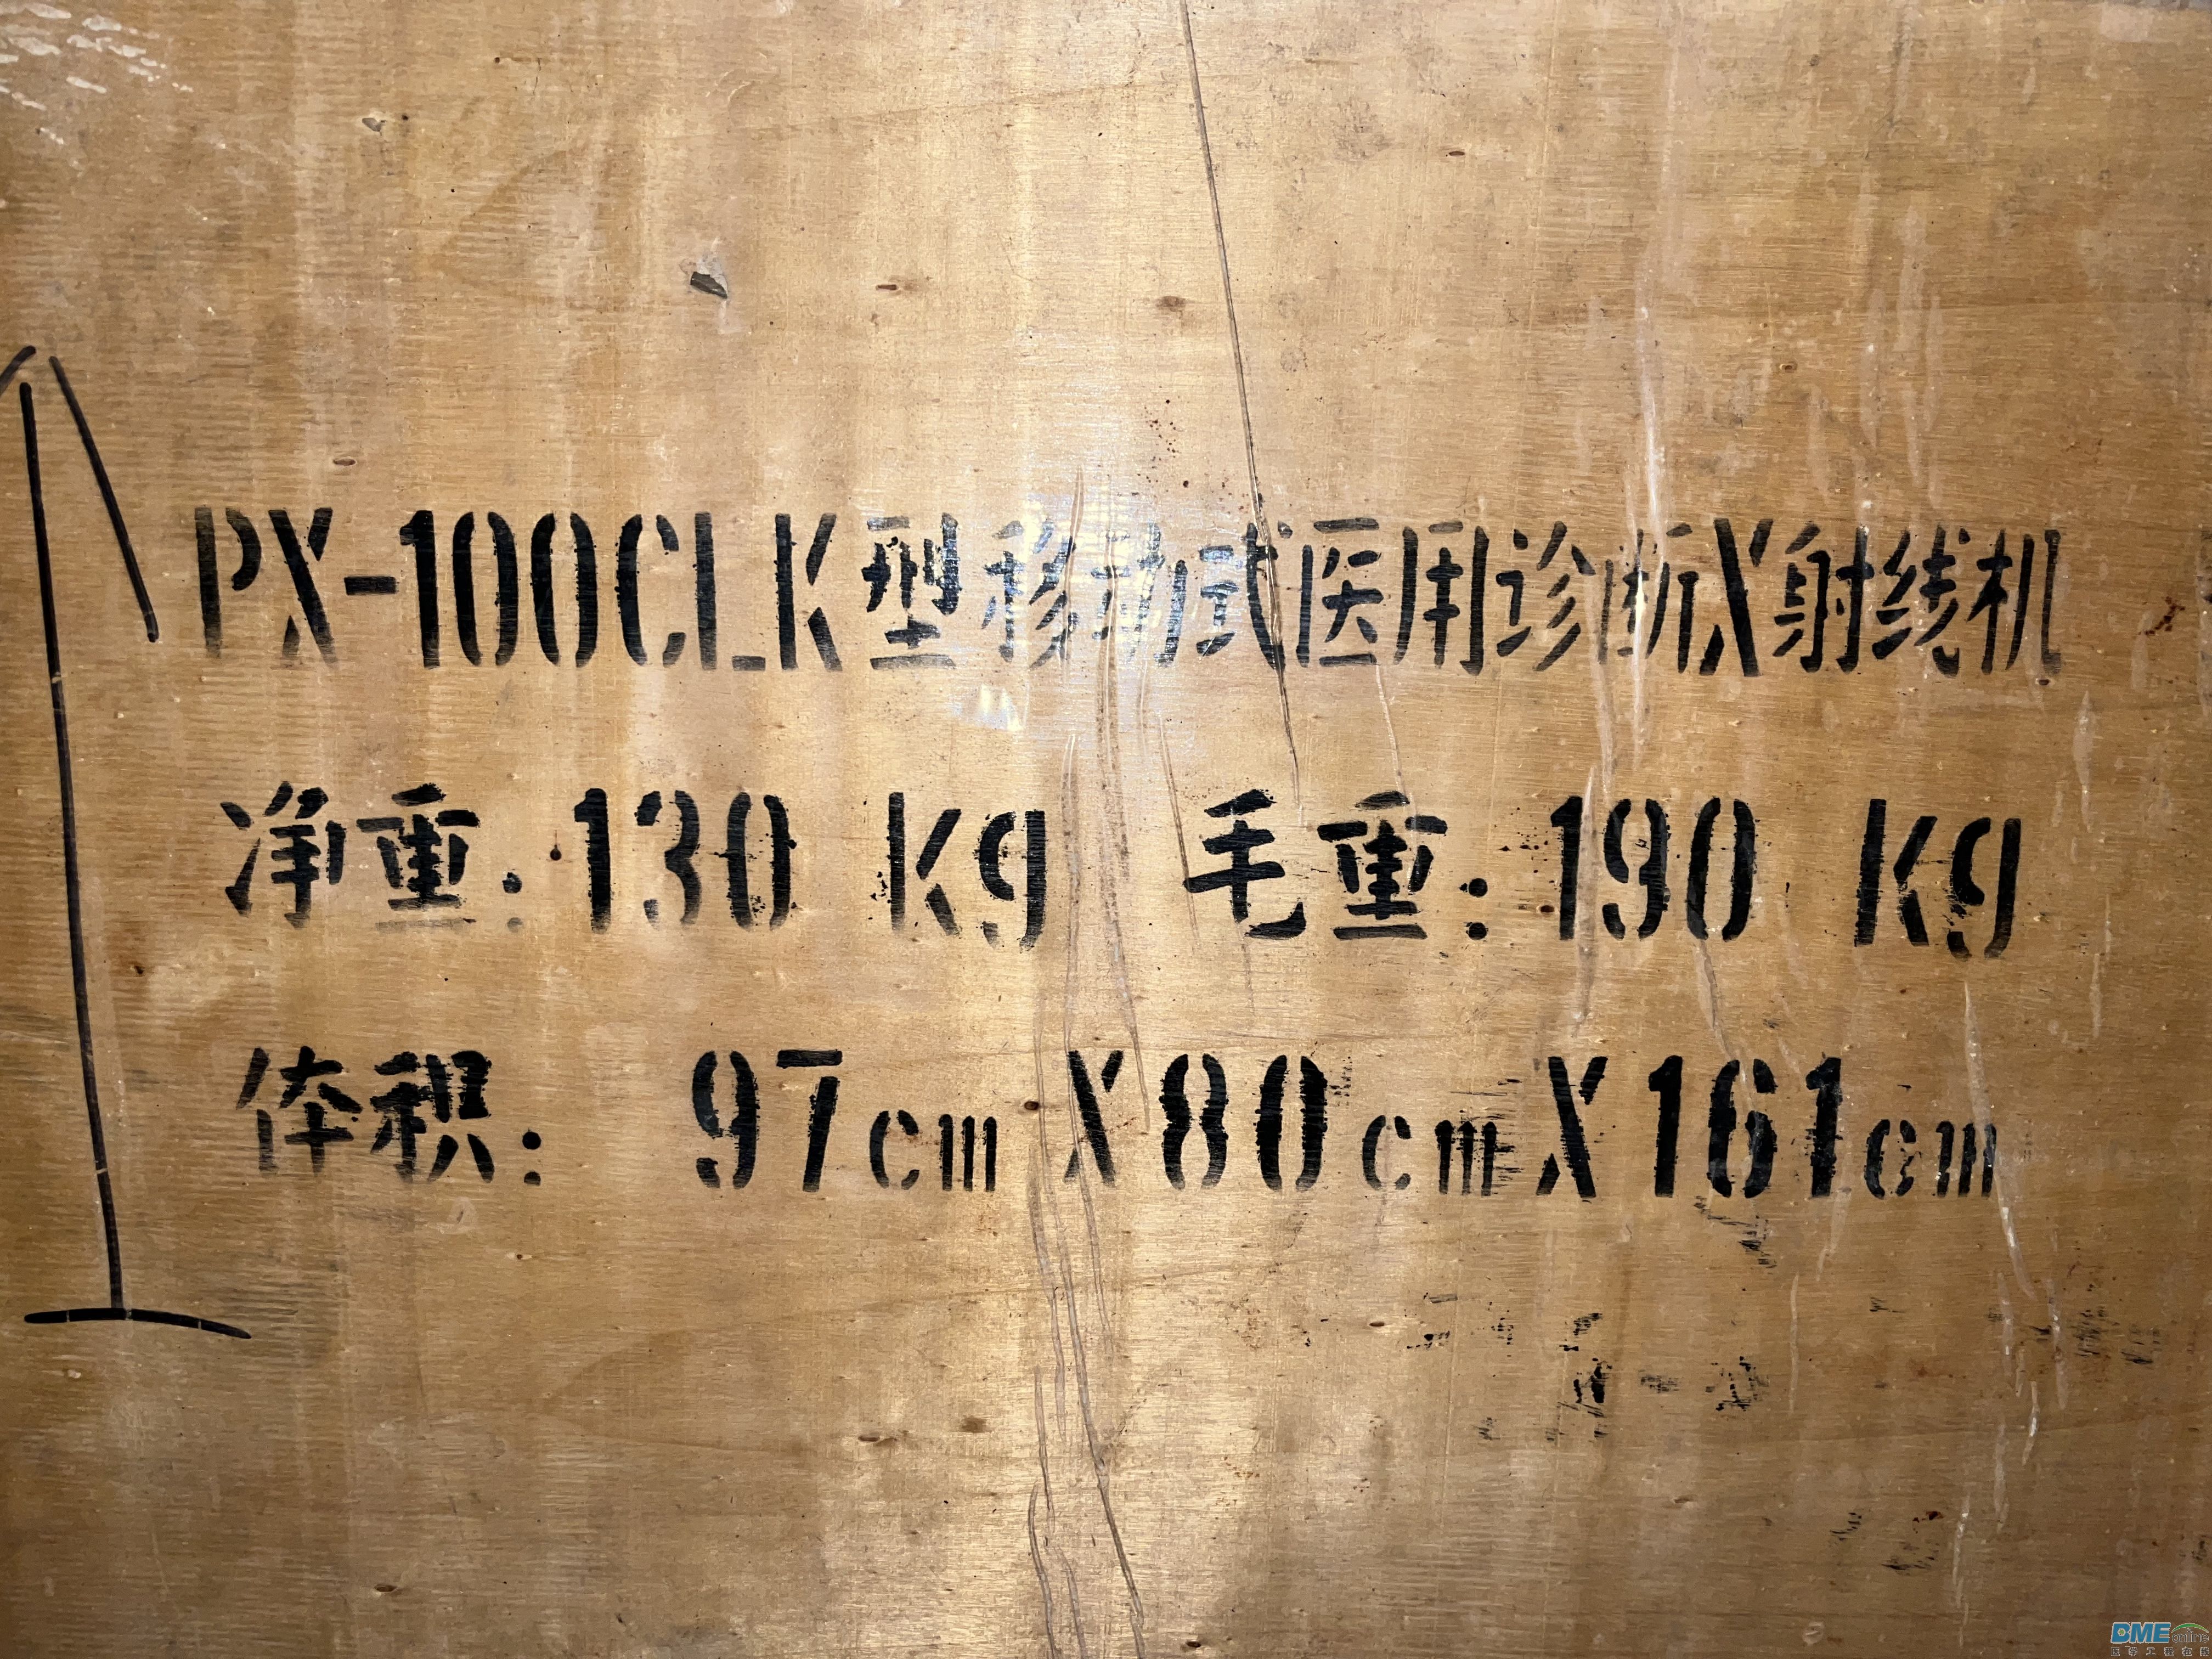 PX-100CLK型移动式医用诊断X射线机
净重:130 Kg 毛重:190 Kg
体积: 97cm X80cmX161cm
BME online
医学工程在线